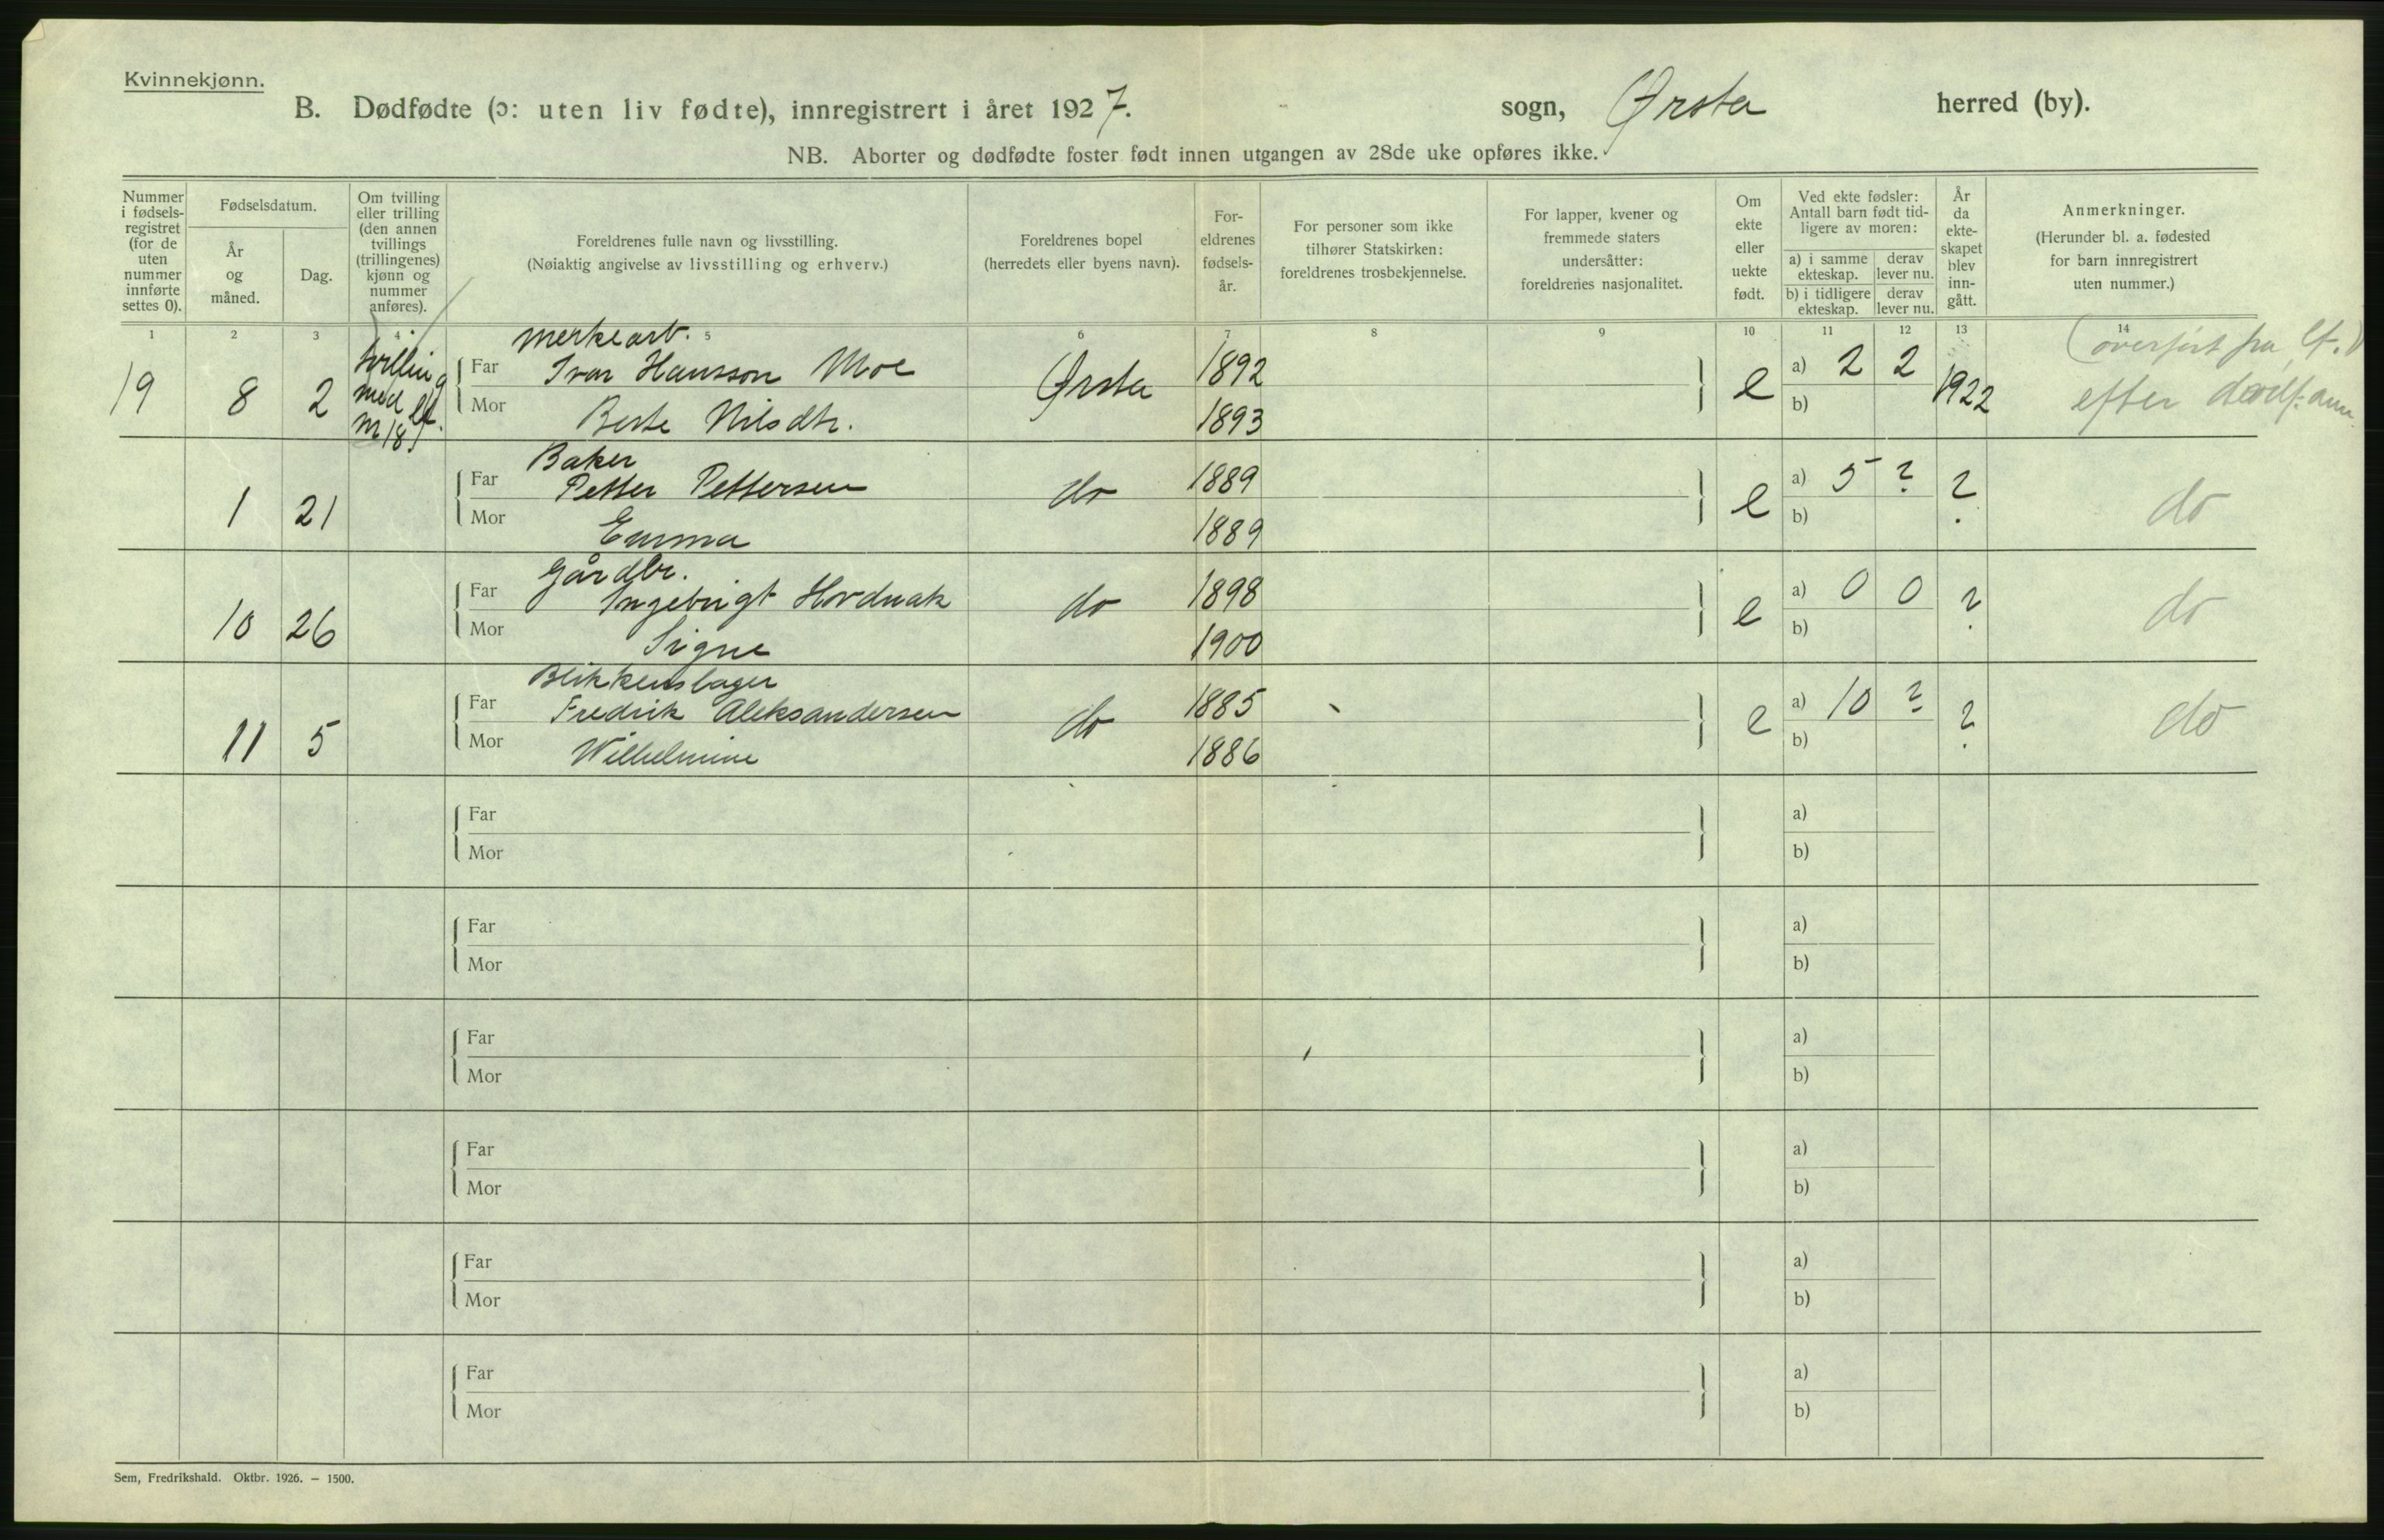 Kvinnekjønn.
B. Dødfødte (ɔ: uten liv fødte), innregistrert i året 1927. sogn, Ørsta herred (by).
NB. Aborter og dødfødte foster født innen utgangen av 28de uke opføres ikke.
Nummer i fødsels-registret (for de uten nummer innførte settes 0).
Fødselsdatum.
År og måned.
Dag.
Om tvilling eller trilling (den annen tvillings (trillingenes) kjønn og nummer anføres).
Foreldrenes fulle navn og livsstilling.
(Nøiaktig angivelse av livsstilling og erhverv.)
Foreldrenes bopel
(herredets eller byens navn).
For-eldrenes fødsels-år.
For personer som ikke tilhører Statskirken: foreldrenes trosbekjennelse.
For lapper, kvener og fremmede staters undersåtter: foreldrenes nasjonalitet.
Om ekte eller uekte født.
Ved ekte fødsler: Antall barn født tid-ligere av moren:
a) i samme ekteskap. derav lever nu.
b) i tidligere ekteskap. derav lever nu.
År da ekte-skapet blev inn-gått.
Anmerkninger.
(Herunder bl. a. fødested for barn innregistrert uten nummer.)
1 2 3 4 5 6 7 8 9 10 11 12 13 14
merkearb. (overført fra lf.)
19 8 2 tvilling med lf. nr 18 Far Ivar Hansson Moe Ørsta 1892 e a) 2 2 1922 efter
Mor Berte Nilsdtr. 1893 b)
Baker
1 21 Far Petter Pettersen do 1889 e a) 5 ? ? do
Mor Emma 1889 b)
Gårdbr.
10 26 Far Ingebrigt Hovdnak do 1898 e a) 0 0 ? do
Mor Signe 1900 b)
Blikkenslager
11 5 Far Fredrik Aleksandersen do 1885 e a) 10 ? ? do
Mor Wilhelmine 1886 b)
Far a)
Mor b)
Far a)
Mor b)
Far a)
Mor b)
Far a)
Mor b)
Far a)
Mor b)
Far a)
Mor b)
Sem, Fredrikshald. Oktbr. 1926. — 1500.